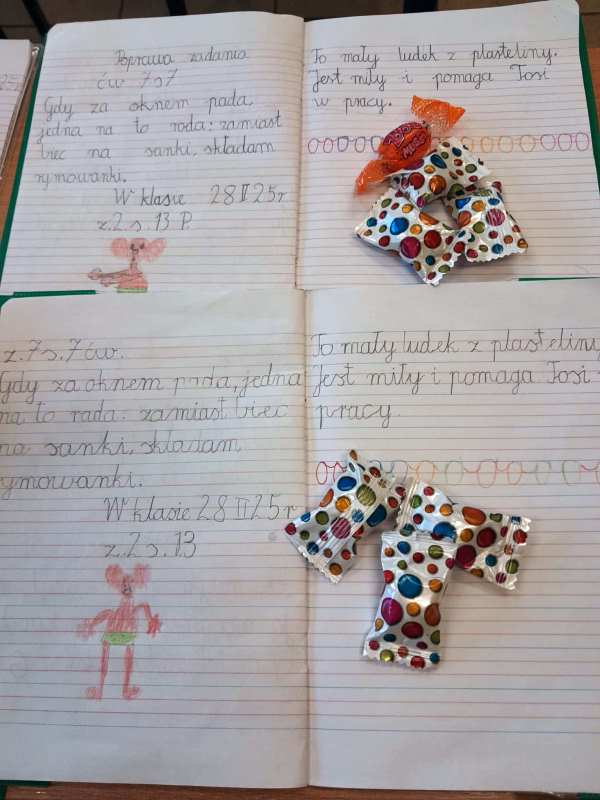 Poprawa zadania
ćw 7 s 7
Gdy za oknem pada,
jedna na to rada: zamiast
biec na sanki, składam
rymowanki.
W klasie 28 II 25r
z.2 s. 13 P.
To mały ludek z plasteliny.
Jest miły i pomaga Tosi
w pracy.
z. 7 s. 7 ćw.
Gdy za oknem pada, jedna
na to rada: zamiast biec
na sanki, składam
rymowanki.
W klasie 28 II 25r
z. 2 s. 13
To mały ludek z plasteliny,
Jest miły i pomaga Tosi
pracy.